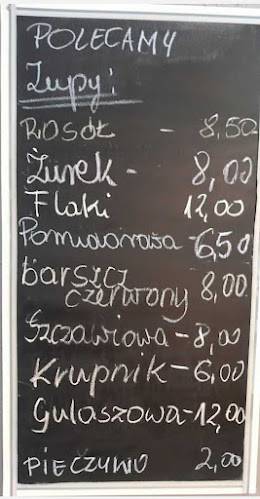 POLECAMY
Zupy:
ROSÓŁ - 8,50
Żurek - 8,00
Flaki 12,00
Pomidorowa - 6,50
barszcz
czerwony 8,00
Szczawiowa - 8,00
Krupnik - 6,00
Gulaszowa - 12,00
PIECZYWO 2,00